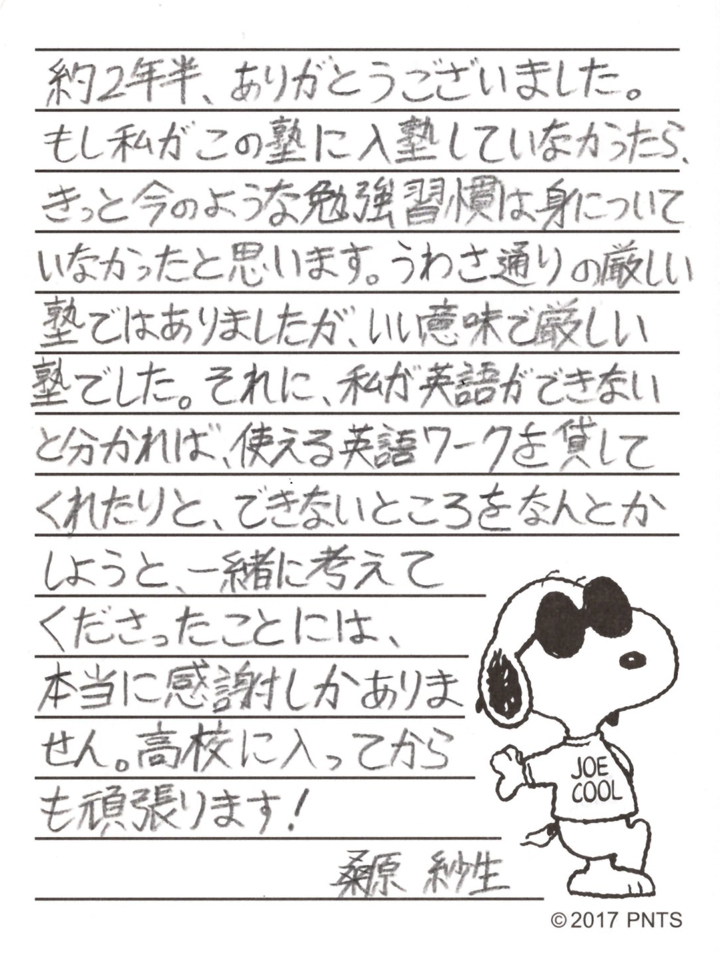 約2年半、ありがとうございました。
もし私がこの塾に入塾していなかったら、
きっと今のような勉強習慣は身について
いなかったと思います。うわさ通りの厳しい
塾ではありましたが、いい意味で厳しい
塾でした。それに、私が英語ができない
と分かれば、使える英語ワークを貸して
くれたりと、できないところをなんとか
しようと、一緒に考えて
くださったことには、
本当に感謝しかありま
せん。高校に入ってから
も頑張ります!
桑原 紗生
JOE
COOL
©2017 PNTS